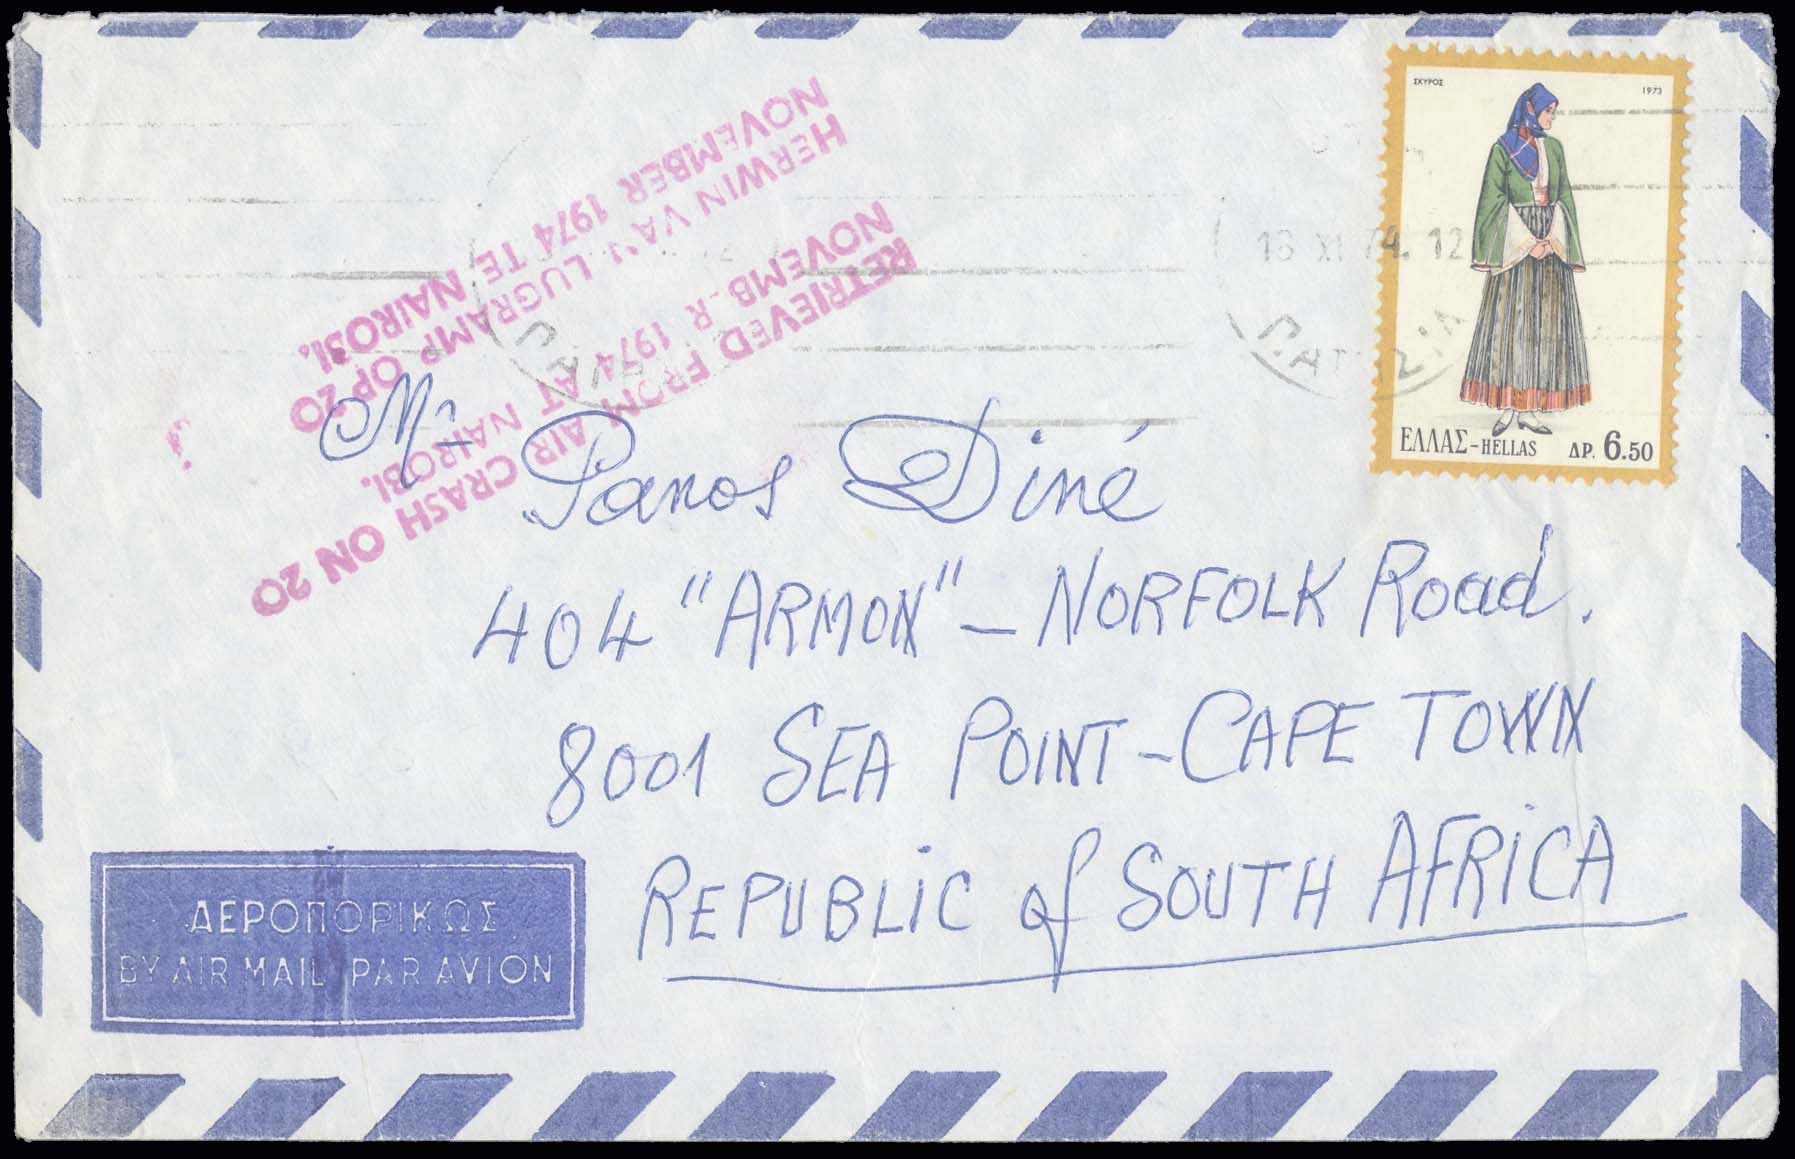 ΣΚΥΡΟΣ 1973
ΕΛΛΑΣ-HELLAS ΔΡ. 6.50
18 XI 74. 12
HERWIN VAN LUGRAMP OP 20
NOVEMBER 1974 TE NAIROBI.
RETRIEVED FROM AIR CRASH ON 20
NOVEMB R 1974 AT NAIROBI.
Mr Panos Diné
404 "ARMON" - NORFOLK Road.
8001 SEA POINT - CAPE TOWN
REPUBLiC of SOUTH AFRiCA
ΑΕΡΟΠΟΡΙΚΩΣ
BY AIR MAIL PAR AVION